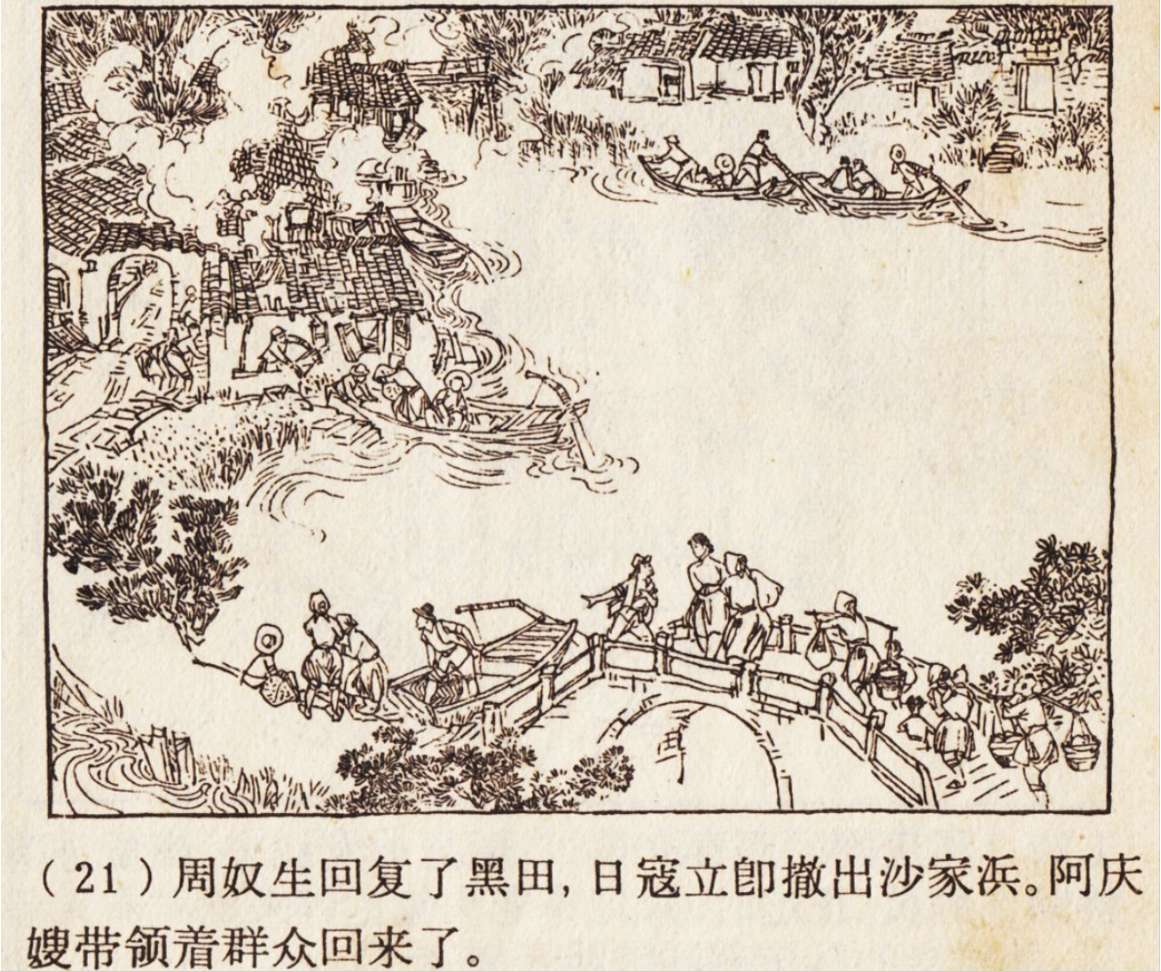 （21）周奴生回复了黑田，日寇立即撤出沙家浜。阿庆
嫂带领着群众回来了。